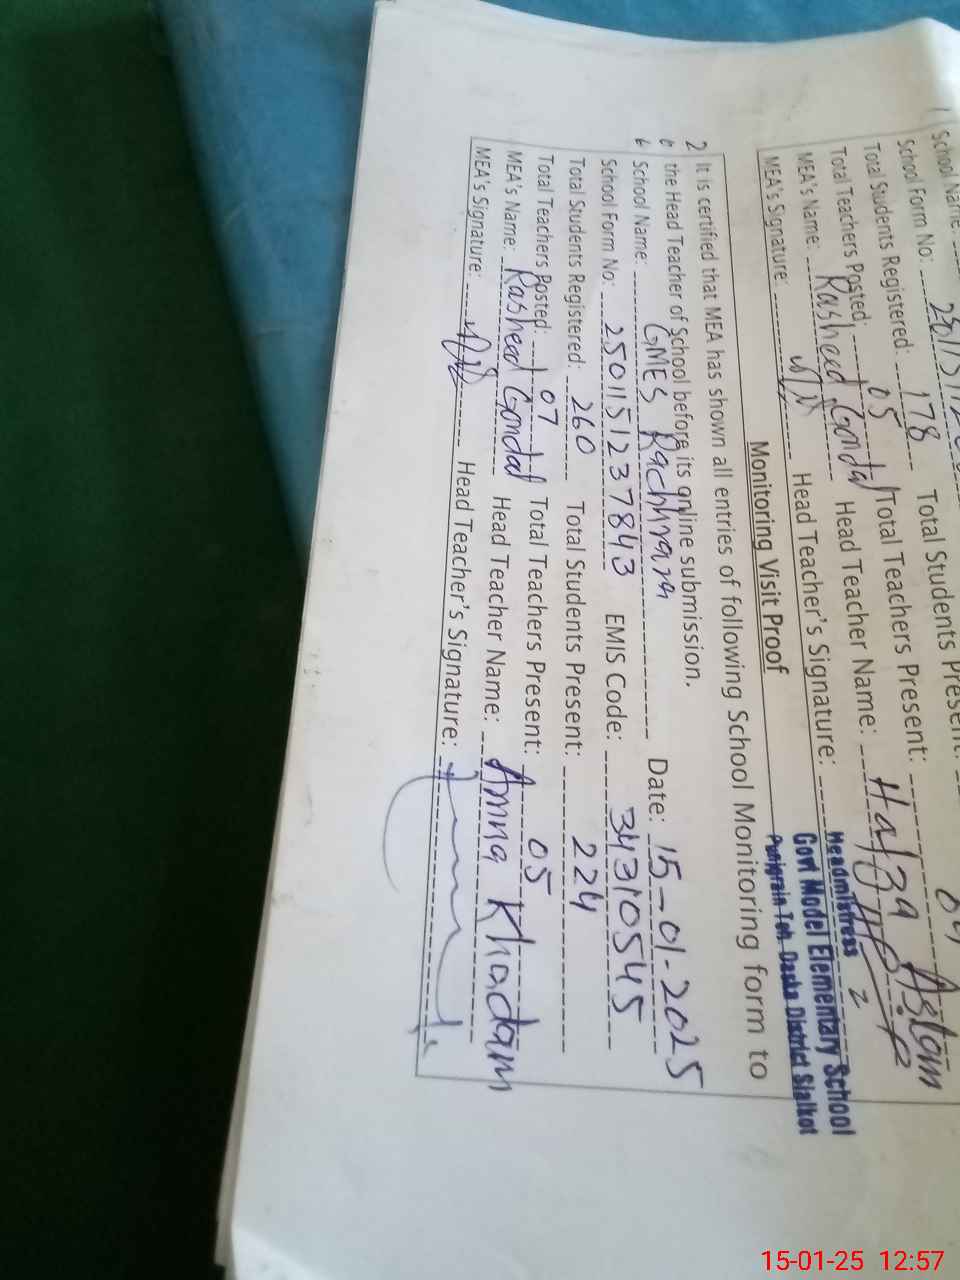 1 School Name:
School Form No:
Total Students Registered: 178 Total Students Present:
Total Teachers Posted: 05 Total Teachers Present: 04
MEA's Name: Rasheed Gondal Head Teacher Name: Hafza Aslam
MEA's Signature: Head Teacher's Signature:
Headmistress
Govt Model Elementary School
Punjgrain Teh Daska District Sialkot
Monitoring Visit Proof
2 It is certified that MEA has shown all entries of following School Monitoring form to
the Head Teacher of School before its online submission.
School Name: GMES Rachhrara Date: 15-01-2025
School Form No: 2501151237843 EMIS Code: 34310545
Total Students Registered: 260 Total Students Present: 224
Total Teachers Posted: 07 Total Teachers Present: 05
MEA's Name: Rasheed Gondal Head Teacher Name: Amna Khadam
MEA's Signature: Head Teacher's Signature:
15-01-25 12:57